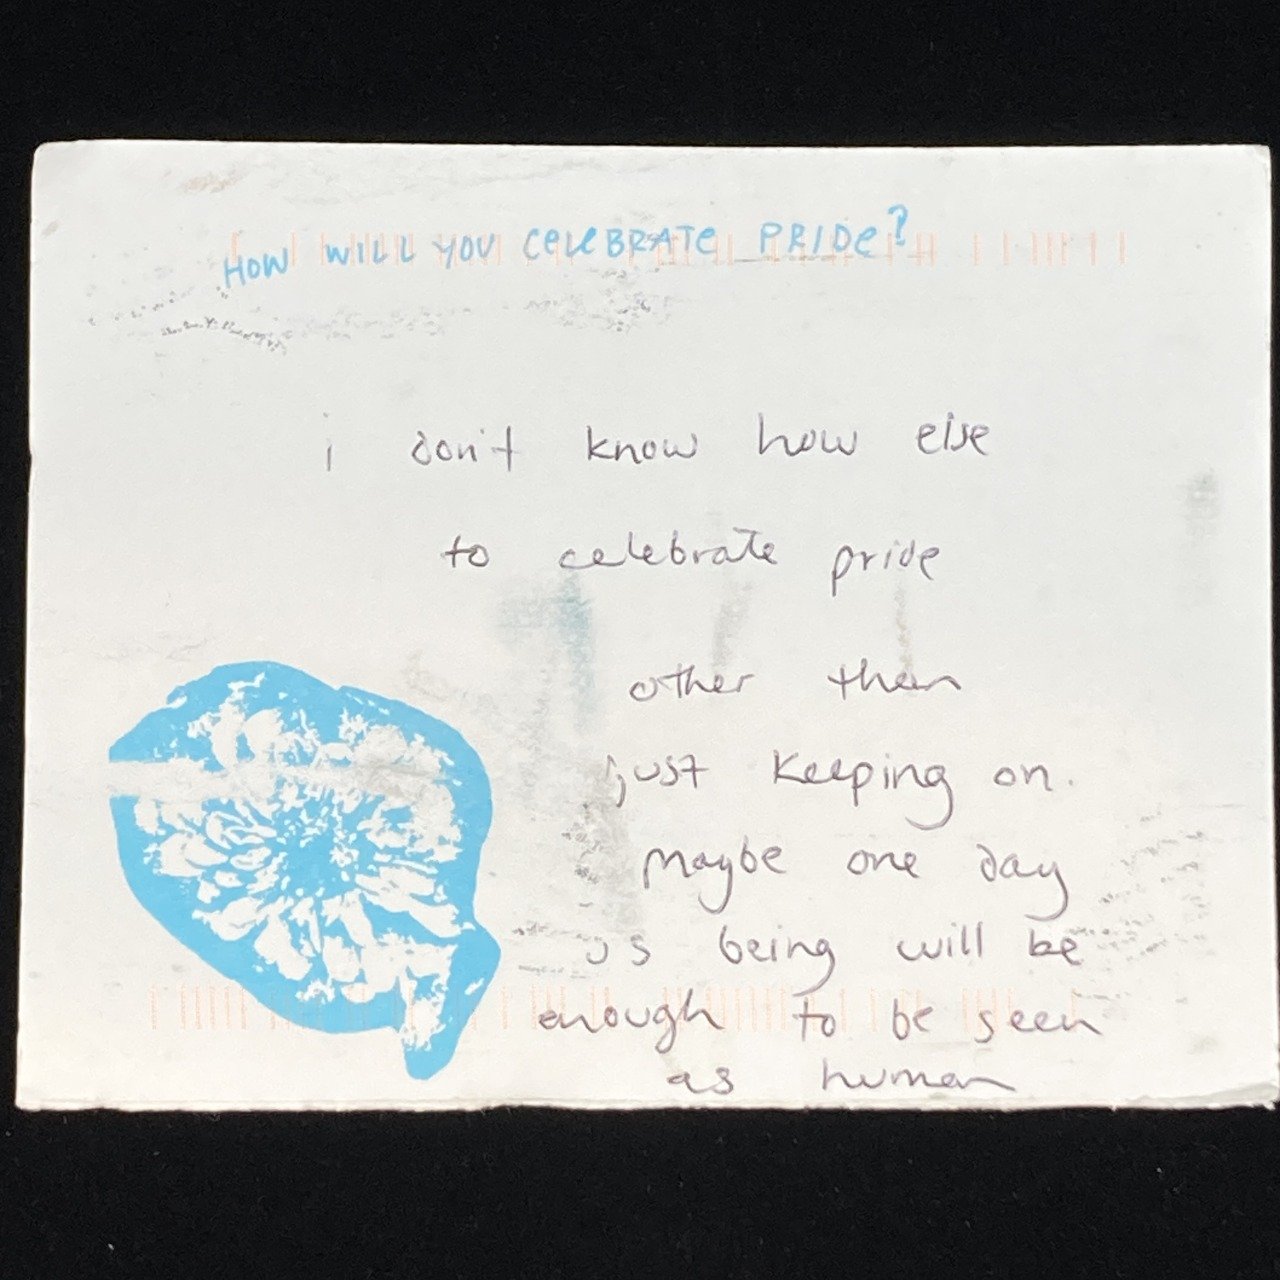 HOW WILL YOU CELEBRATE PRIDE?
i don't know how else
to celebrate pride
other than
just keeping on.
maybe one day
us being will be
enough to be seen
as human